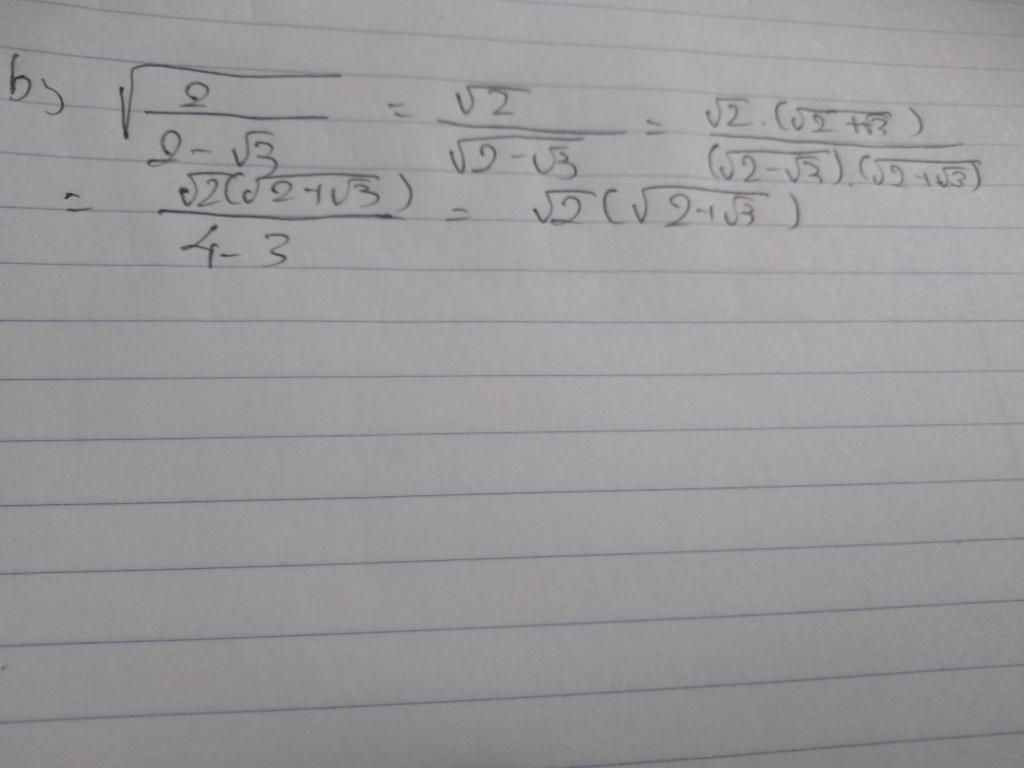 b) √(2/(2-√3)) = √2/√(2-√3) = √2.(√(2+√3))/((√(2-√3)).(√(2+√3)))
= √2(√(2+√3))/(4-3) = √2(√(2+√3))